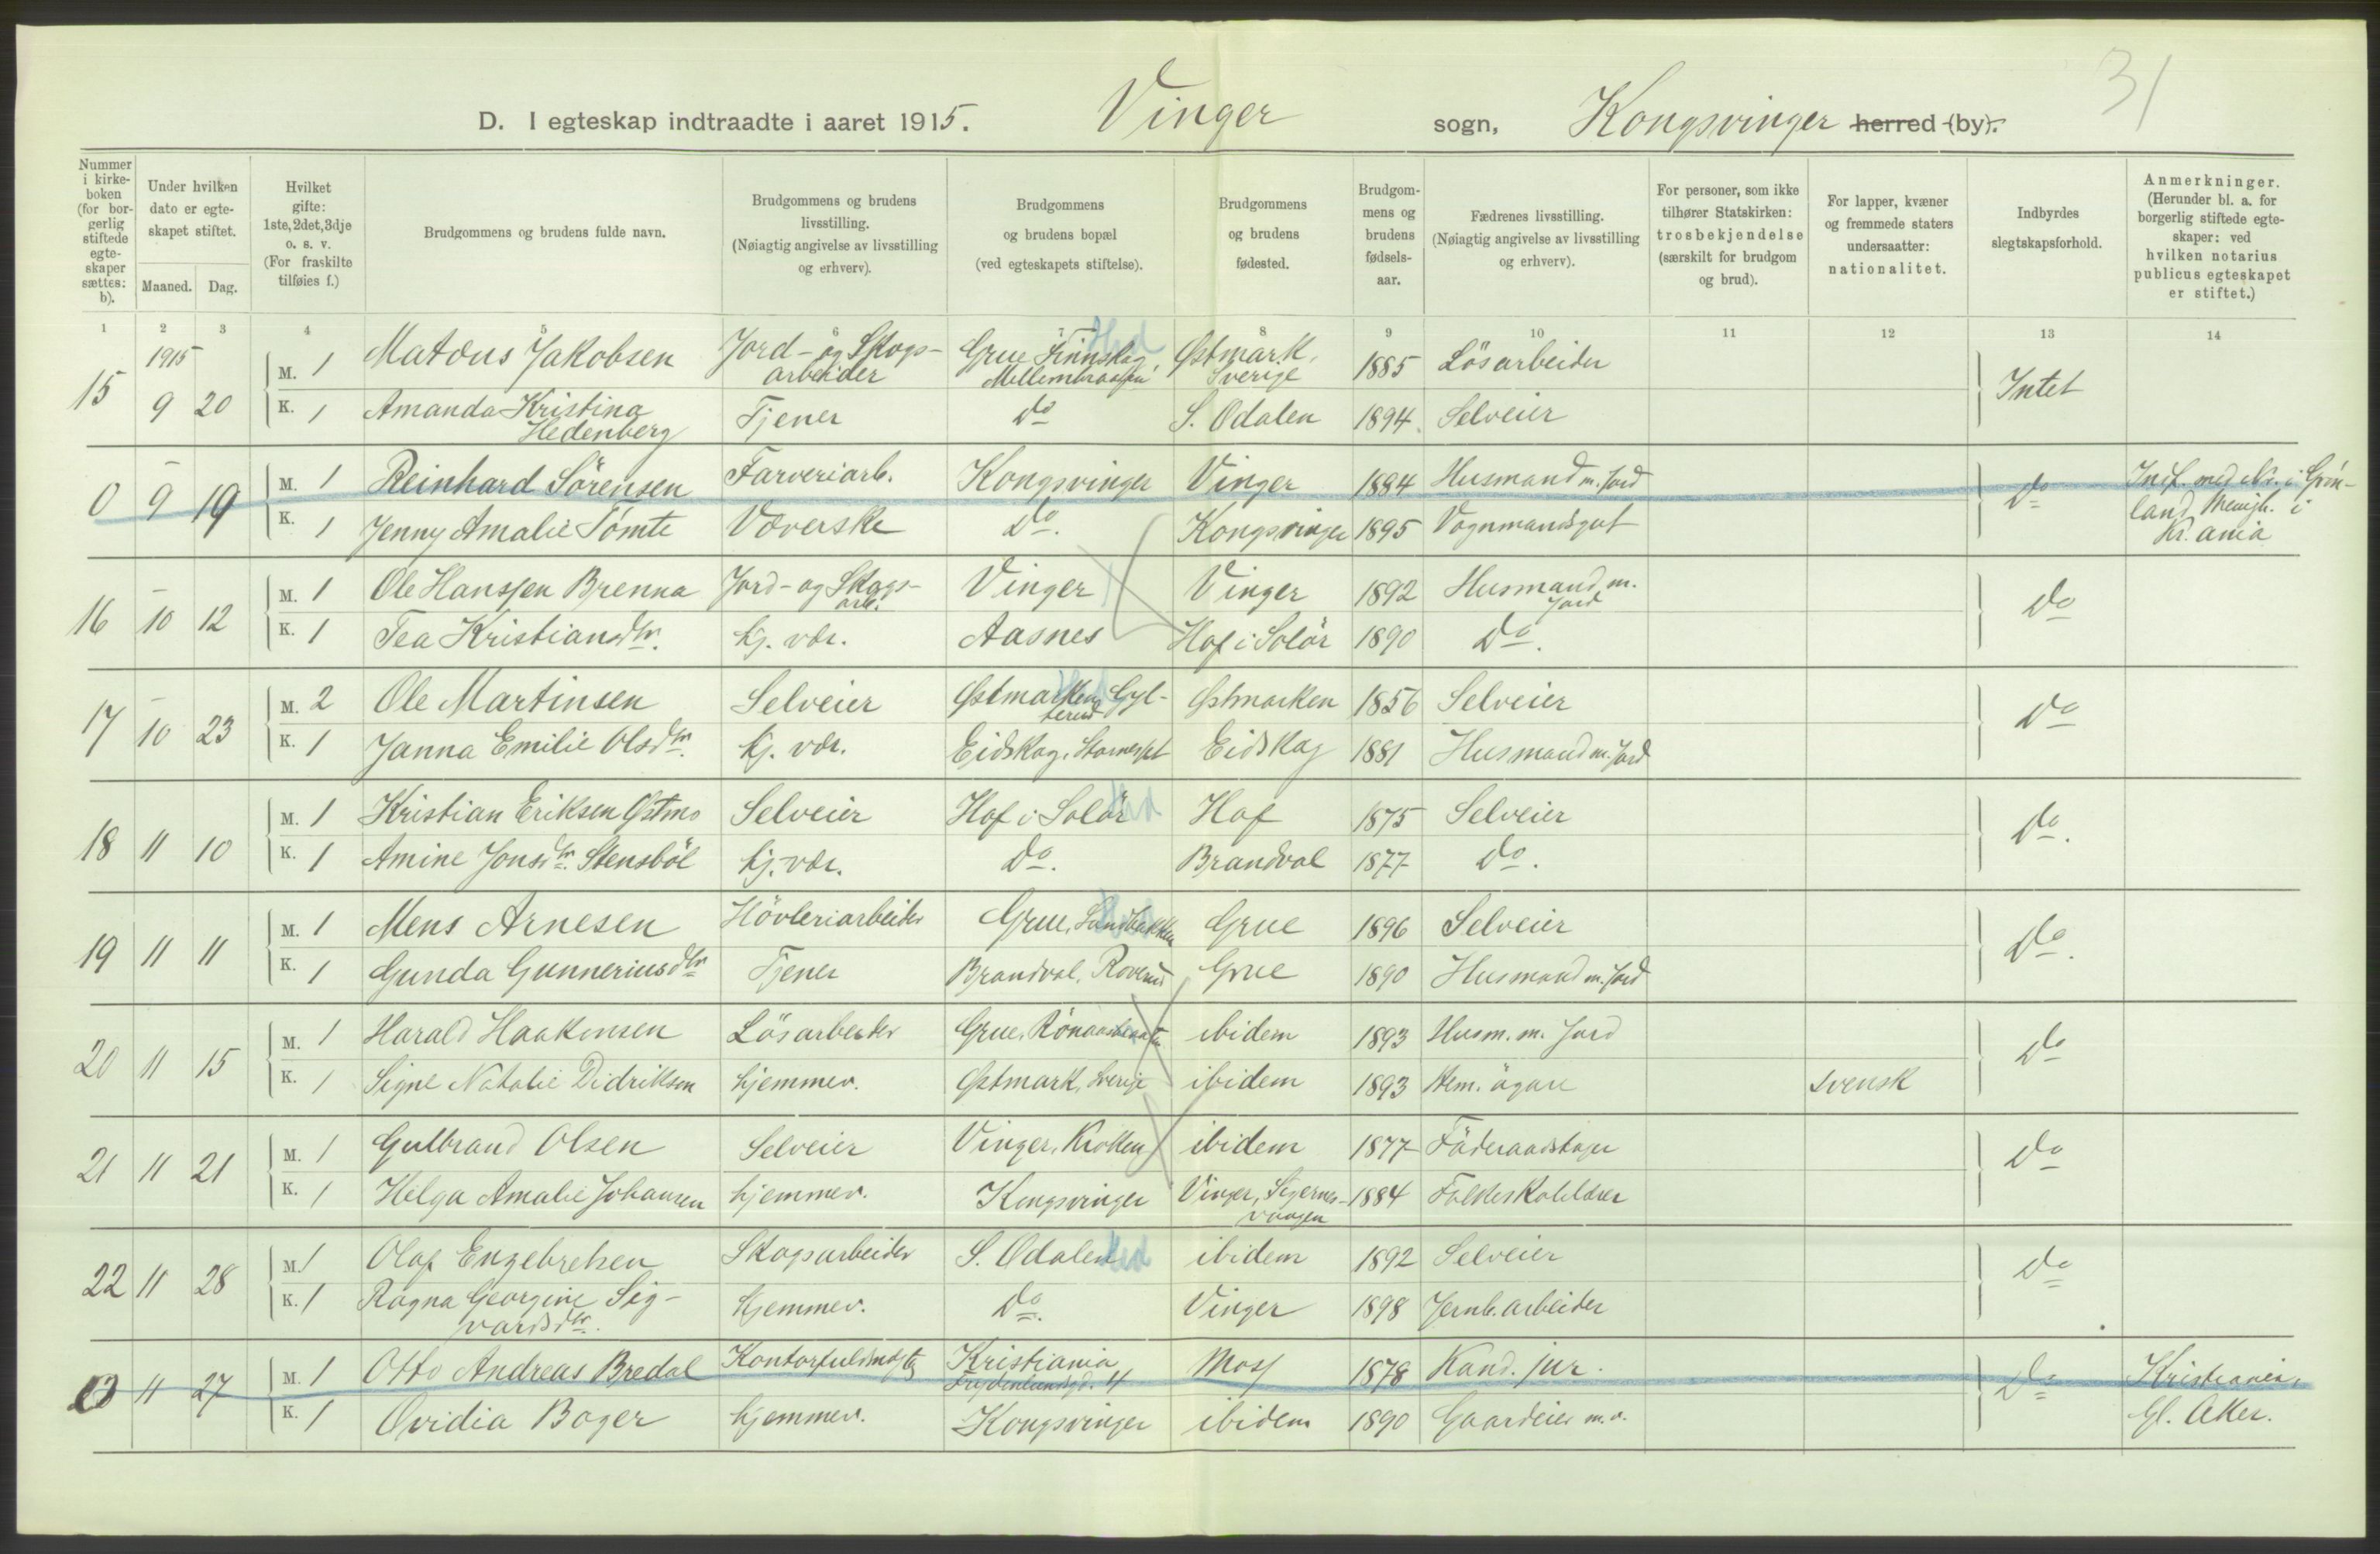 31
D. I egteskap indtraadte i aaret 1915. Vinger sogn, Kongsvinger herred (by).
Nummer i kirke-boken (for bor-gerlig stiftede egte-skaper sættes: b).
Under hvilken dato er egte-skapet stiftet.
Maaned. Dag.
Hvilket gifte: 1ste, 2det, 3dje o. s. v. (For fraskilte tilføies f.)
Brudgommens og brudens fulde navn.
Brudgommens og brudens livsstilling. (Nøiagtig angivelse av livsstilling og erhverv).
Brudgommens og brudens bopæl (ved egteskapets stiftelse).
Brudgommens og brudens fødested.
Brudgom-mens og brudens fødsels-aar.
Fædrenes livsstilling. (Nøiagtig angivelse av livsstilling og erhverv).
For personer, som ikke tilhører Statskirken: trosbekjendelse (særskilt for brudgom og brud).
For lapper, kvæner og fremmede staters undersaatter: nationalitet.
Indbyrdes slegtskapsforhold.
Anmerkninger. (Herunder bl. a. for borgerlig stiftede egte-skaper: ved hvilken notarius publicus egteskapet er stiftet.)
1 2 3 4 5 6 7 8 9 10 11 12 13 14
1915
15 9 20 M. 1 Matæus Jakobsen Jord- og Skogs-arbeider Grue Finnskog Østmark, Sverige 1885 Lösarbeider Intet
K. 1 Amanda Kristina Hedenberg Tjener Do S. Odalen 1894 Selveier
0 9 19 M. 1 Reinhard Sörensen Farveriarb. Kongsvinger Vinger 1884 Husmand m. Jord Do Indf. med Nr. i Grön-land Menigh. i Kr.ania
K. 1 Jenny Amalie Tömte Væverske Do. Kongsvinger 1895 Vognmandsgut
16 10 12 M. 1 Ole Hanssen Brenna Jord- og Skogs-arb. Vinger Vinger 1892 Husmand m. Jord Do
K. 1 Tea Kristiansdtr. hj. vær. Aasnes Hof i Solör 1890 Do.
17 10 23 M. 2 Ole Martinsen Selveier Østmarken, Gyl-terud Østmarken 1856 Selveier Do
K. 1 Janna Emilie Olsdtr. hj. vær. Eidskog, Eidskog 1881 Husmand m. Jord
18 11 10 M. 1 Kristian Eriksen Østmo Selveier Hof i Solör Hof 1875 Selveier Do.
K. 1 Amine Jonsdtr. Stensböl hj. vær. Do. Brandval 1877 Do.
19 11 11 M. 1 Mens Arnesen Hövleriarbeider Grue, Sandbakken Grue 1896 Selveier Do.
K. 1 Gunda Gunneriusdtr Tjener Brandval, Roverud Grue 1890 Husmand m. Jord
20 11 15 M. 1 Harald Haakensen Lösarbeider Grue, ibidem 1893 Husm. m. Jord Do
K. 1 Signe Natalie Didriksen hjemmev. Østmark, Sverige ibidem 1893 Hem. ägare svensk
21 11 21 M. 1 Gulbrand Olsen Selveier Vinger, Krokken ibidem 1877 Föderaadstager Do
K. 1 Helga Amalie Johansen hjemmev. Kongsvinger Vinger, Sigernes-vangen 1884 Folkeskolelærer
22 11 28 M. 1 Olaf Engebretsen Skogsarbeider S. Odalen ibidem 1892 Selveier Do
K. 1 Ragna Georgine Sig-vardsdtr. hjemmev. Do. Vinger 1898 Jernb.arbeider
0 11 27 M. 1 Otto Andreas Bredal Kontorfuldmægtig Kristiania Frydenlundsgd. 4 Moss 1878 Kand. jur. Do Kristiania, Gl. Aker.
K. 1 Ovidia Boger hjemmev. Kongsvinger ibidem 1890 Gaardeier m.v.